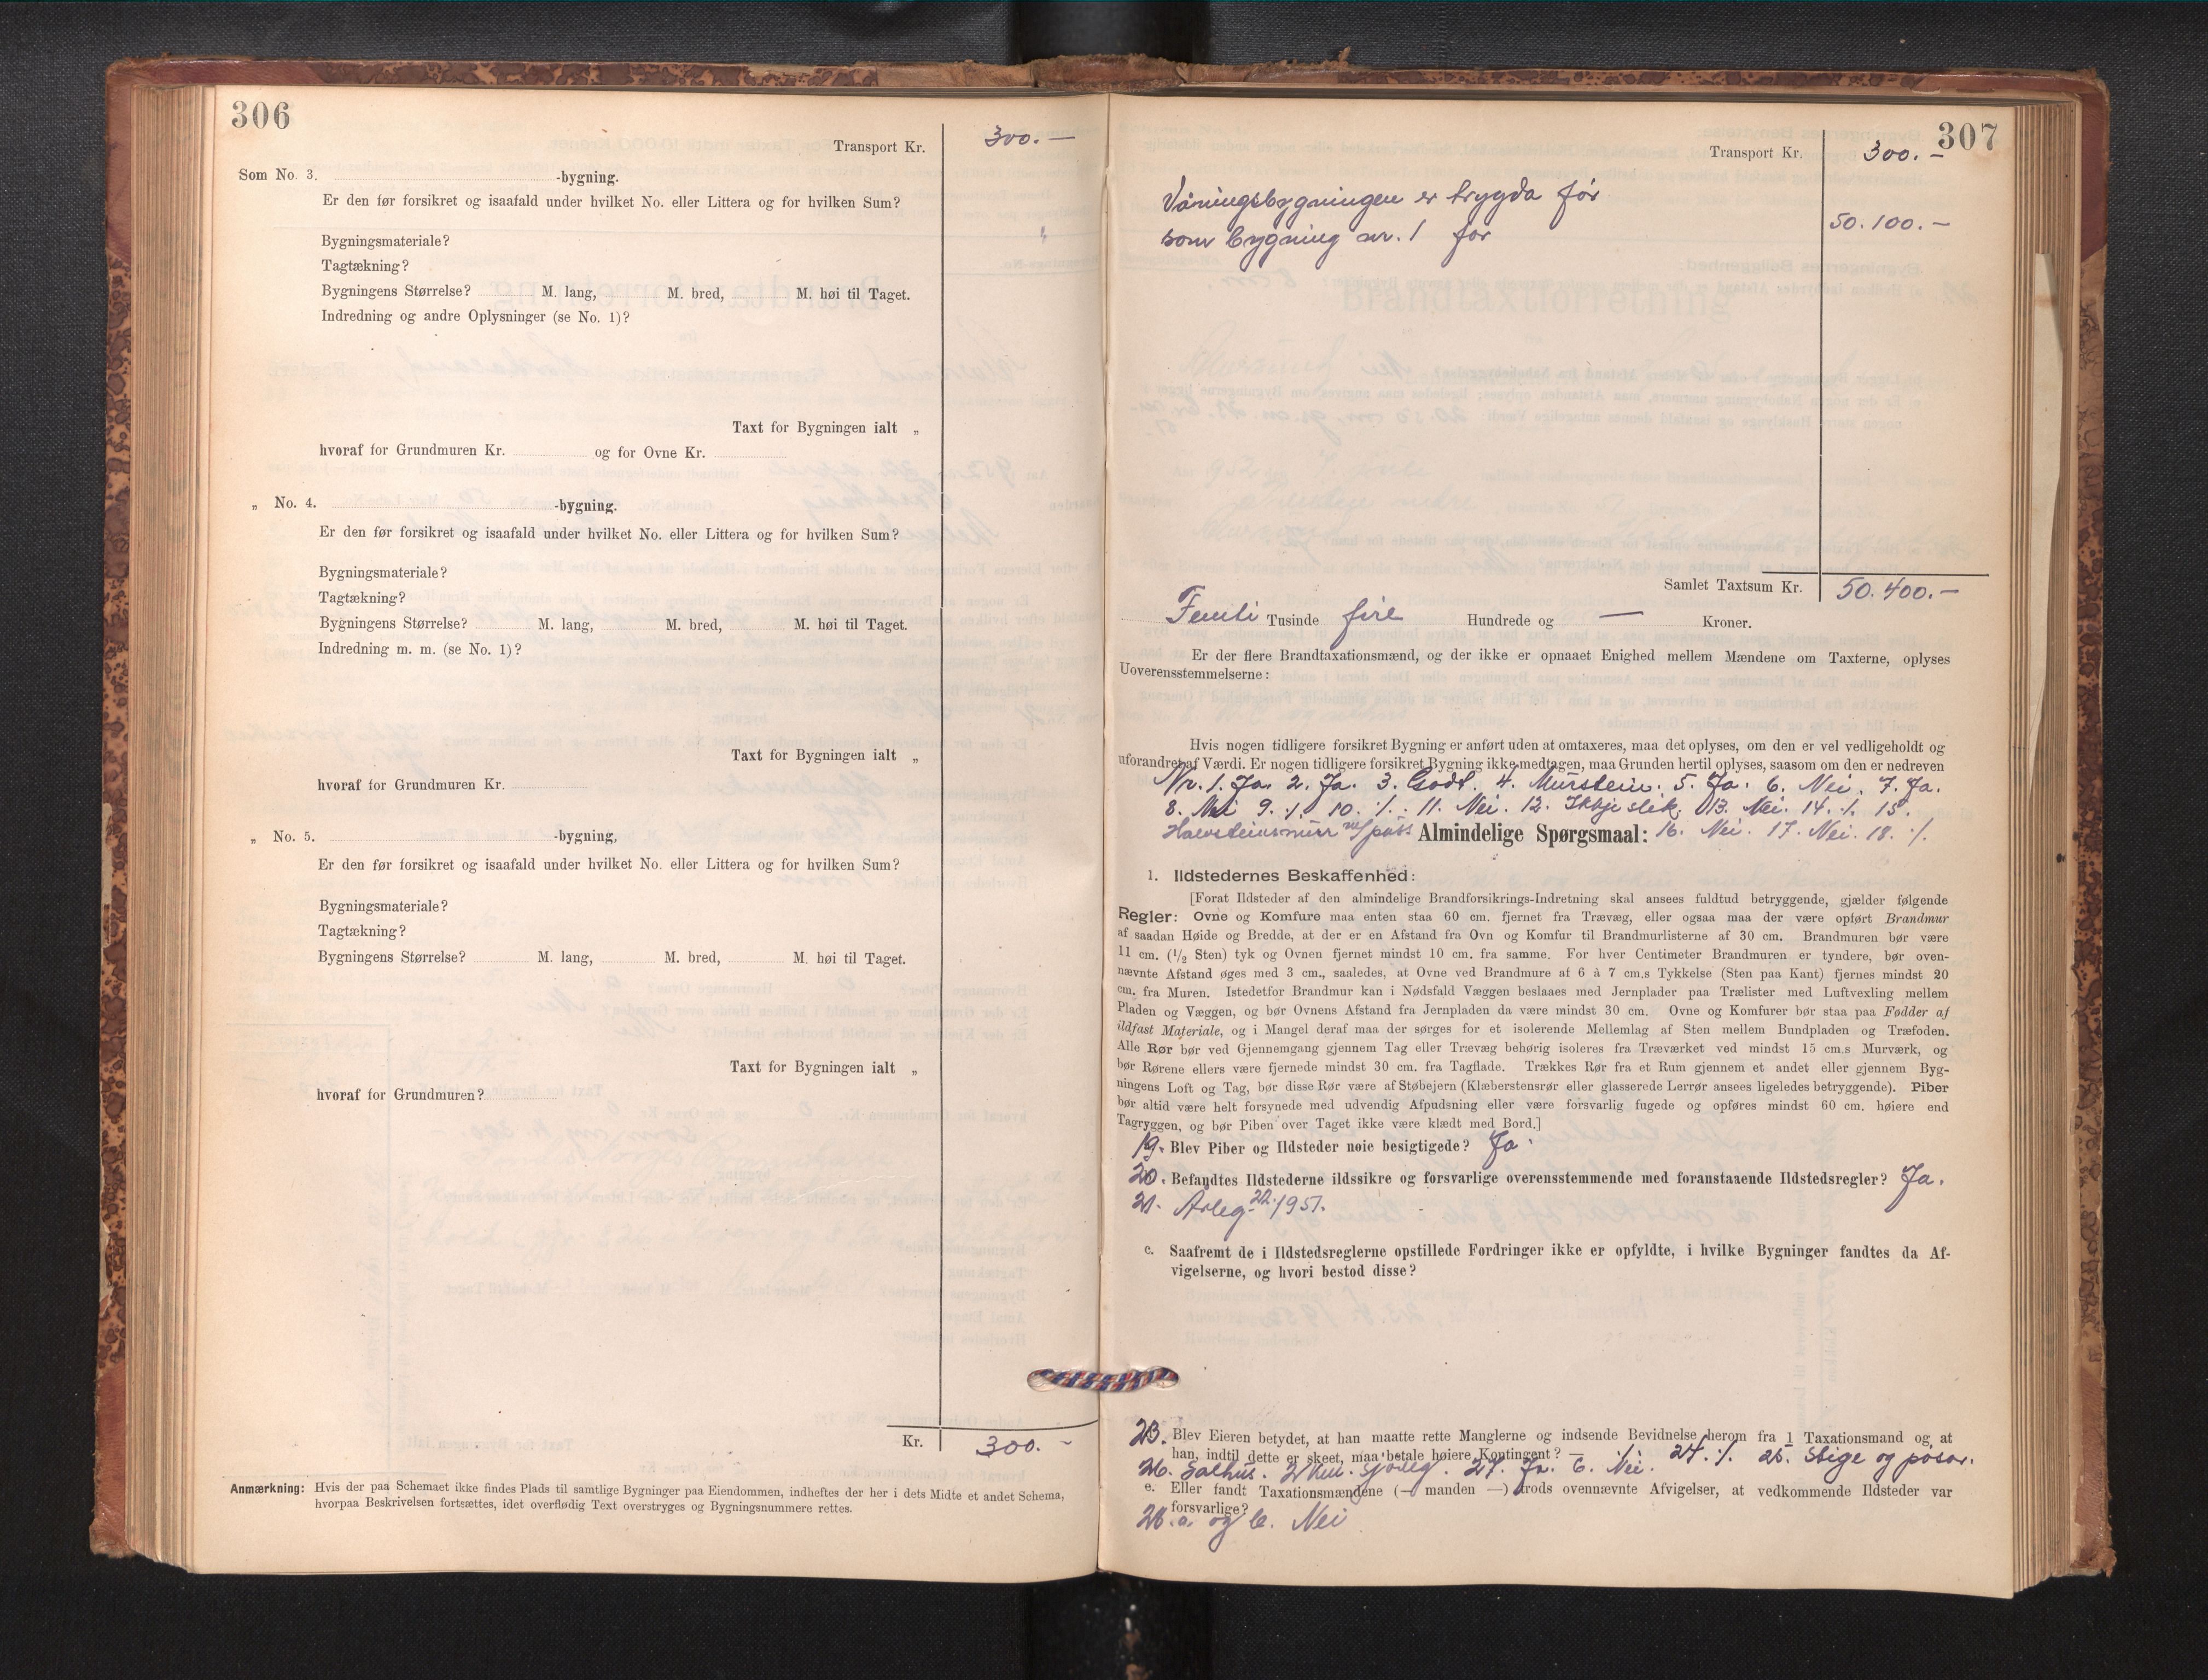 306
Transport Kr. 300.—
Som No. 3. -bygning.
Er den før forsikret og isaafald under hvilket No. eller Littera og for hvilken Sum?
Bygningsmateriale?
Tagtækning?
Bygningens Størrelse? M. lang, M. bred, M. høi til Taget.
Indredning og andre Oplysninger (se No. 1)?
Taxt for Bygningen ialt „
hvoraf for Grundmuren Kr. og for Ovne Kr.
„ No. 4. -bygning.
Er den før forsikret og isaafald under hvilket No. eller Littera og for hvilken Sum?
Bygningsmateriale?
Tagtækning?
Bygningens Størrelse? M. lang, M. bred, M. høi til Taget.
Indredning m. m. (se No. 1)?
Taxt for Bygningen ialt „
hvoraf for Grundmuren Kr.
„ No. 5. -bygning,
Er den før forsikret og isaafald under hvilket No. eller Littera og for hvilken Sum?
Bygningsmateriale?
Tagtækning?
Bygningens Størrelse? M. lang, M. bred, M. høi til Taget.
Taxt for Bygningen ialt „
hvoraf for Grundmuren?
Kr. 300.—
Anmærkning: Hvis der paa Schemaet ikke findes Plads til samtlige Bygninger paa Eiendommen, indheftes der her i dets Midte et andet Schema,
hvorpaa Beskrivelsen fortsættes, idet overflødig Text overstryges og Bygningsnummere rettes.
307
Transport Kr. 300.—
Våningsbygningen er trygda før
som bygning nr. 1 for 50.100.—
Samlet Taxtsum Kr. 50.400.—
Femti Tusinde fire Hundrede og — Kroner.
Er der flere Brandtaxationsmænd, og der ikke er opnaaet Enighed mellem Mændene om Taxterne, oplyses
Uoverensstemmelserne:
Hvis nogen tidligere forsikret Bygning er anført uden at omtaxeres, maa det oplyses, om den er vel vedligeholdt og
uforandret af Værdi. Er nogen tidligere forsikret Bygning ikke medtagen, maa Grunden hertil oplyses, saasom om den er nedreven
Nr. 1. Ja. 2. Ja. 3. Godt. 4. Murstein. 5. Ja. 6. Nei. 7. Ja.
8. Nei 9. ./. 10. ./. 11. Nei. 12. Ikkje slik. 13. Nei. 14. ./. 15.
Halvsteinsmur m/puss Almindelige Spørgsmaal: 16. Nei. 17. Nei. 18. ./.
1. Ildstedernes Beskaffenhed:
[Forat Ildsteder af den almindelige Brandforsikrings-Indretning skal ansees fuldtud betryggende, gjælder følgende
Regler: Ovne og Komfure maa enten staa 60 cm. fjernet fra Trævæg, eller ogsaa maa der være opført Brandmur
af saadan Høide og Bredde, at der er en Afstand fra Ovn og Komfur til Brandmurlisterne af 30 cm. Brandmuren bør være
11 cm. (1/2 Sten) tyk og Ovnen fjernet mindst 10 cm. fra samme. For hver Centimeter Brandmuren er tyndere, bør oven-
nævnte Afstand øges med 3 cm., saaledes, at Ovne ved Brandmure af 6 à 7 cm.s Tykkelse (Sten paa Kant) fjernes mindst 20
cm. fra Muren. Istedetfor Brandmur kan i Nødsfald Væggen beslaaes med Jernplader paa Trælister med Luftvexling mellem
Pladen og Væggen, og bør Ovnens Afstand fra Jernpladen da være mindst 30 cm. Ovne og Komfurer bør staa paa Fødder af
ildfast Materiale, og i Mangel deraf maa der sørges for et isolerende Mellemlag af Sten mellem Bundpladen og Træfoden.
Alle Rør bør ved Gjennemgang gjennem Tag eller Trævæg behørig isoleres fra Træværket ved mindst 15 cm.s Murværk, og
bør Rørene ellers være fjernede mindst 30 cm. fra Tagflade. Trækkes Rør fra et Rum gjennem et andet eller gjennem Byg-
ningens Loft og Tag, bør disse Rør være af Støbejern (Klæberstensrør eller glasserede Lerrør ansees ligeledes betryggende). Piber
bør altid være helt forsynede med udvendig Afpudsning eller være forsvarlig fugede og opføres mindst 60 cm. høiere end
Tagryggen, og bør Piben over Taget ikke være klædt med Bord.]
19. Blev Piber og Ildsteder nøie besigtigede? Ja.
20. Befandtes Ildstederne ildssikre og forsvarlige overensstemmende med foranstaaende Ildstedsregler? Ja.
21. Årleg. 22. 1951.
c. Saafremt de i Ildstedsreglerne opstillede Fordringer ikke er opfyldte, i hvilke Bygninger fandtes da Af-
vigelserne, og hvori bestod disse?
23. Blev Eieren betydet, at han maatte rette Manglerne og indsende Bevidnelse herom fra 1 Taxationsmand og at
han, indtil dette er skeet, maa betale høiere Kontingent? — ./. 24. ./. 25. Stige og pøsar.
26. Salhus. 2 km. Sjøveg. 27. Ja. b. Nei.
e. Eller fandt Taxationsmændene (— manden —) trods ovennævnte Afvigelser, at vedkommende Ildsteder var
forsvarlige?
28. a. og b. Nei